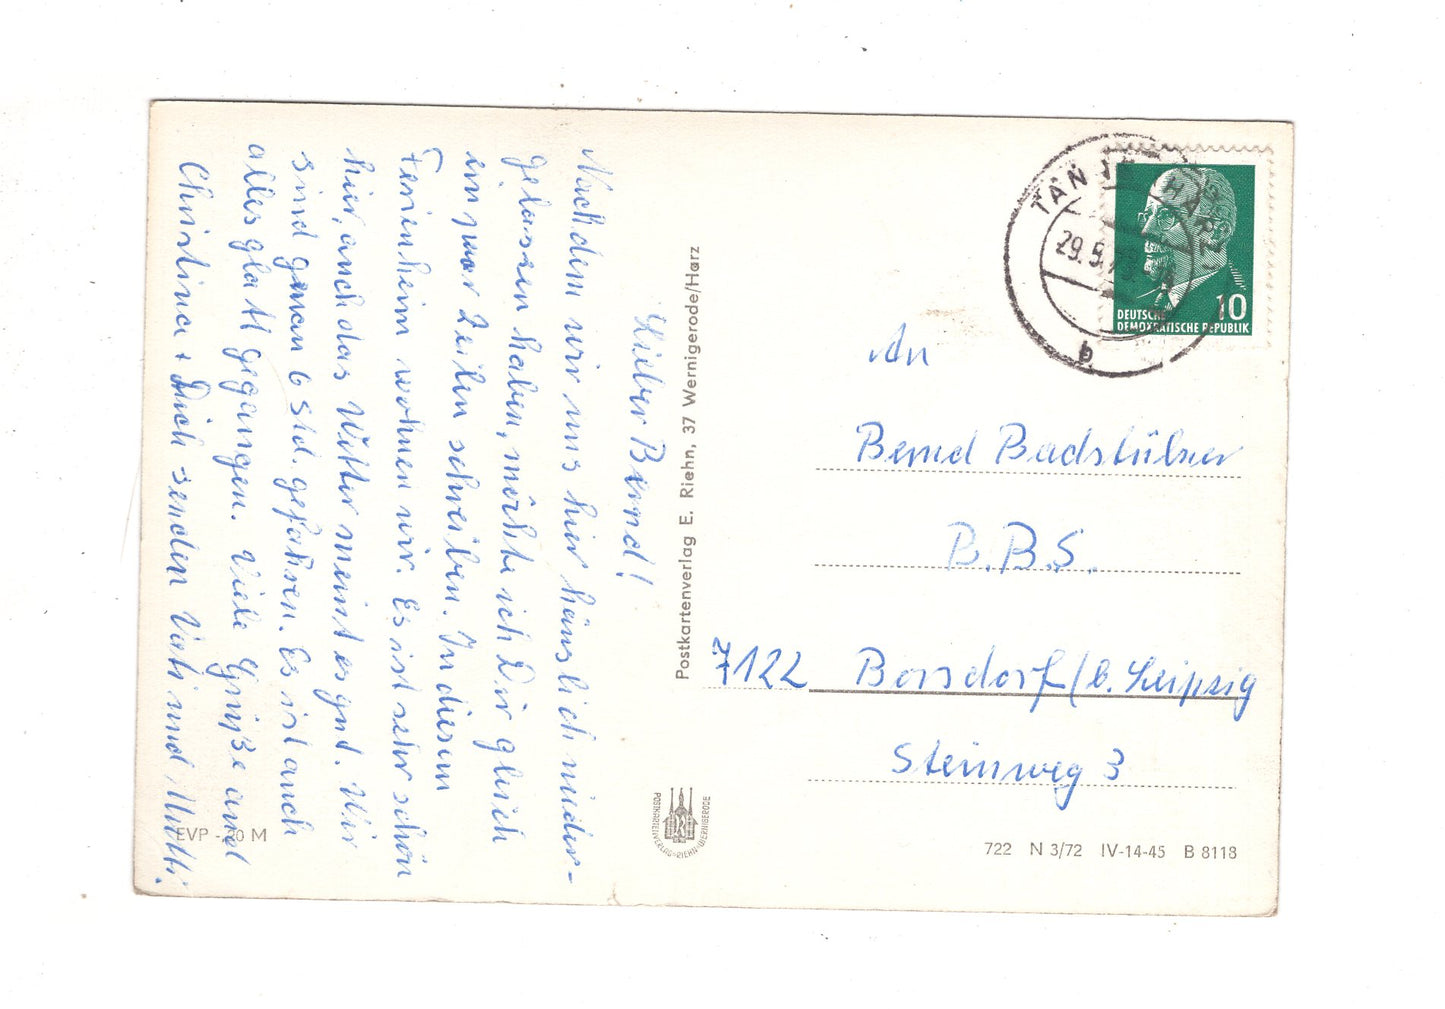 Lieber Bernd!
Nachdem wir uns hier häuslich nieder-
gelassen haben, möchte ich Dir gleich
ein paar Zeilen schreiben. In diesem
Ferienheim wohnen wir. Es ist sehr schön
hier, auch das Wetter meint es gut. Wir
sind genau 6 Std. gefahren. Es ist auch
alles glatt gegangen. Viele Grüße and
Christina + Dich senden Vati und Mutti.
EVP -,20 M
Postkartenverlag E. Riehn, 37 Wernigerode/Harz
POSTKARTENVERLAG · RIEHN · WERNIGERODE
HARZ
29.5.
10
DEUTSCHE
DEMOKRATISCHE REPUBLIK
An
Bernd Badstübner
B.B.S.
7122 Borsdorf/b. Leipzig
Steinweg 3
722 N 3/72 IV-14-45 B 8118